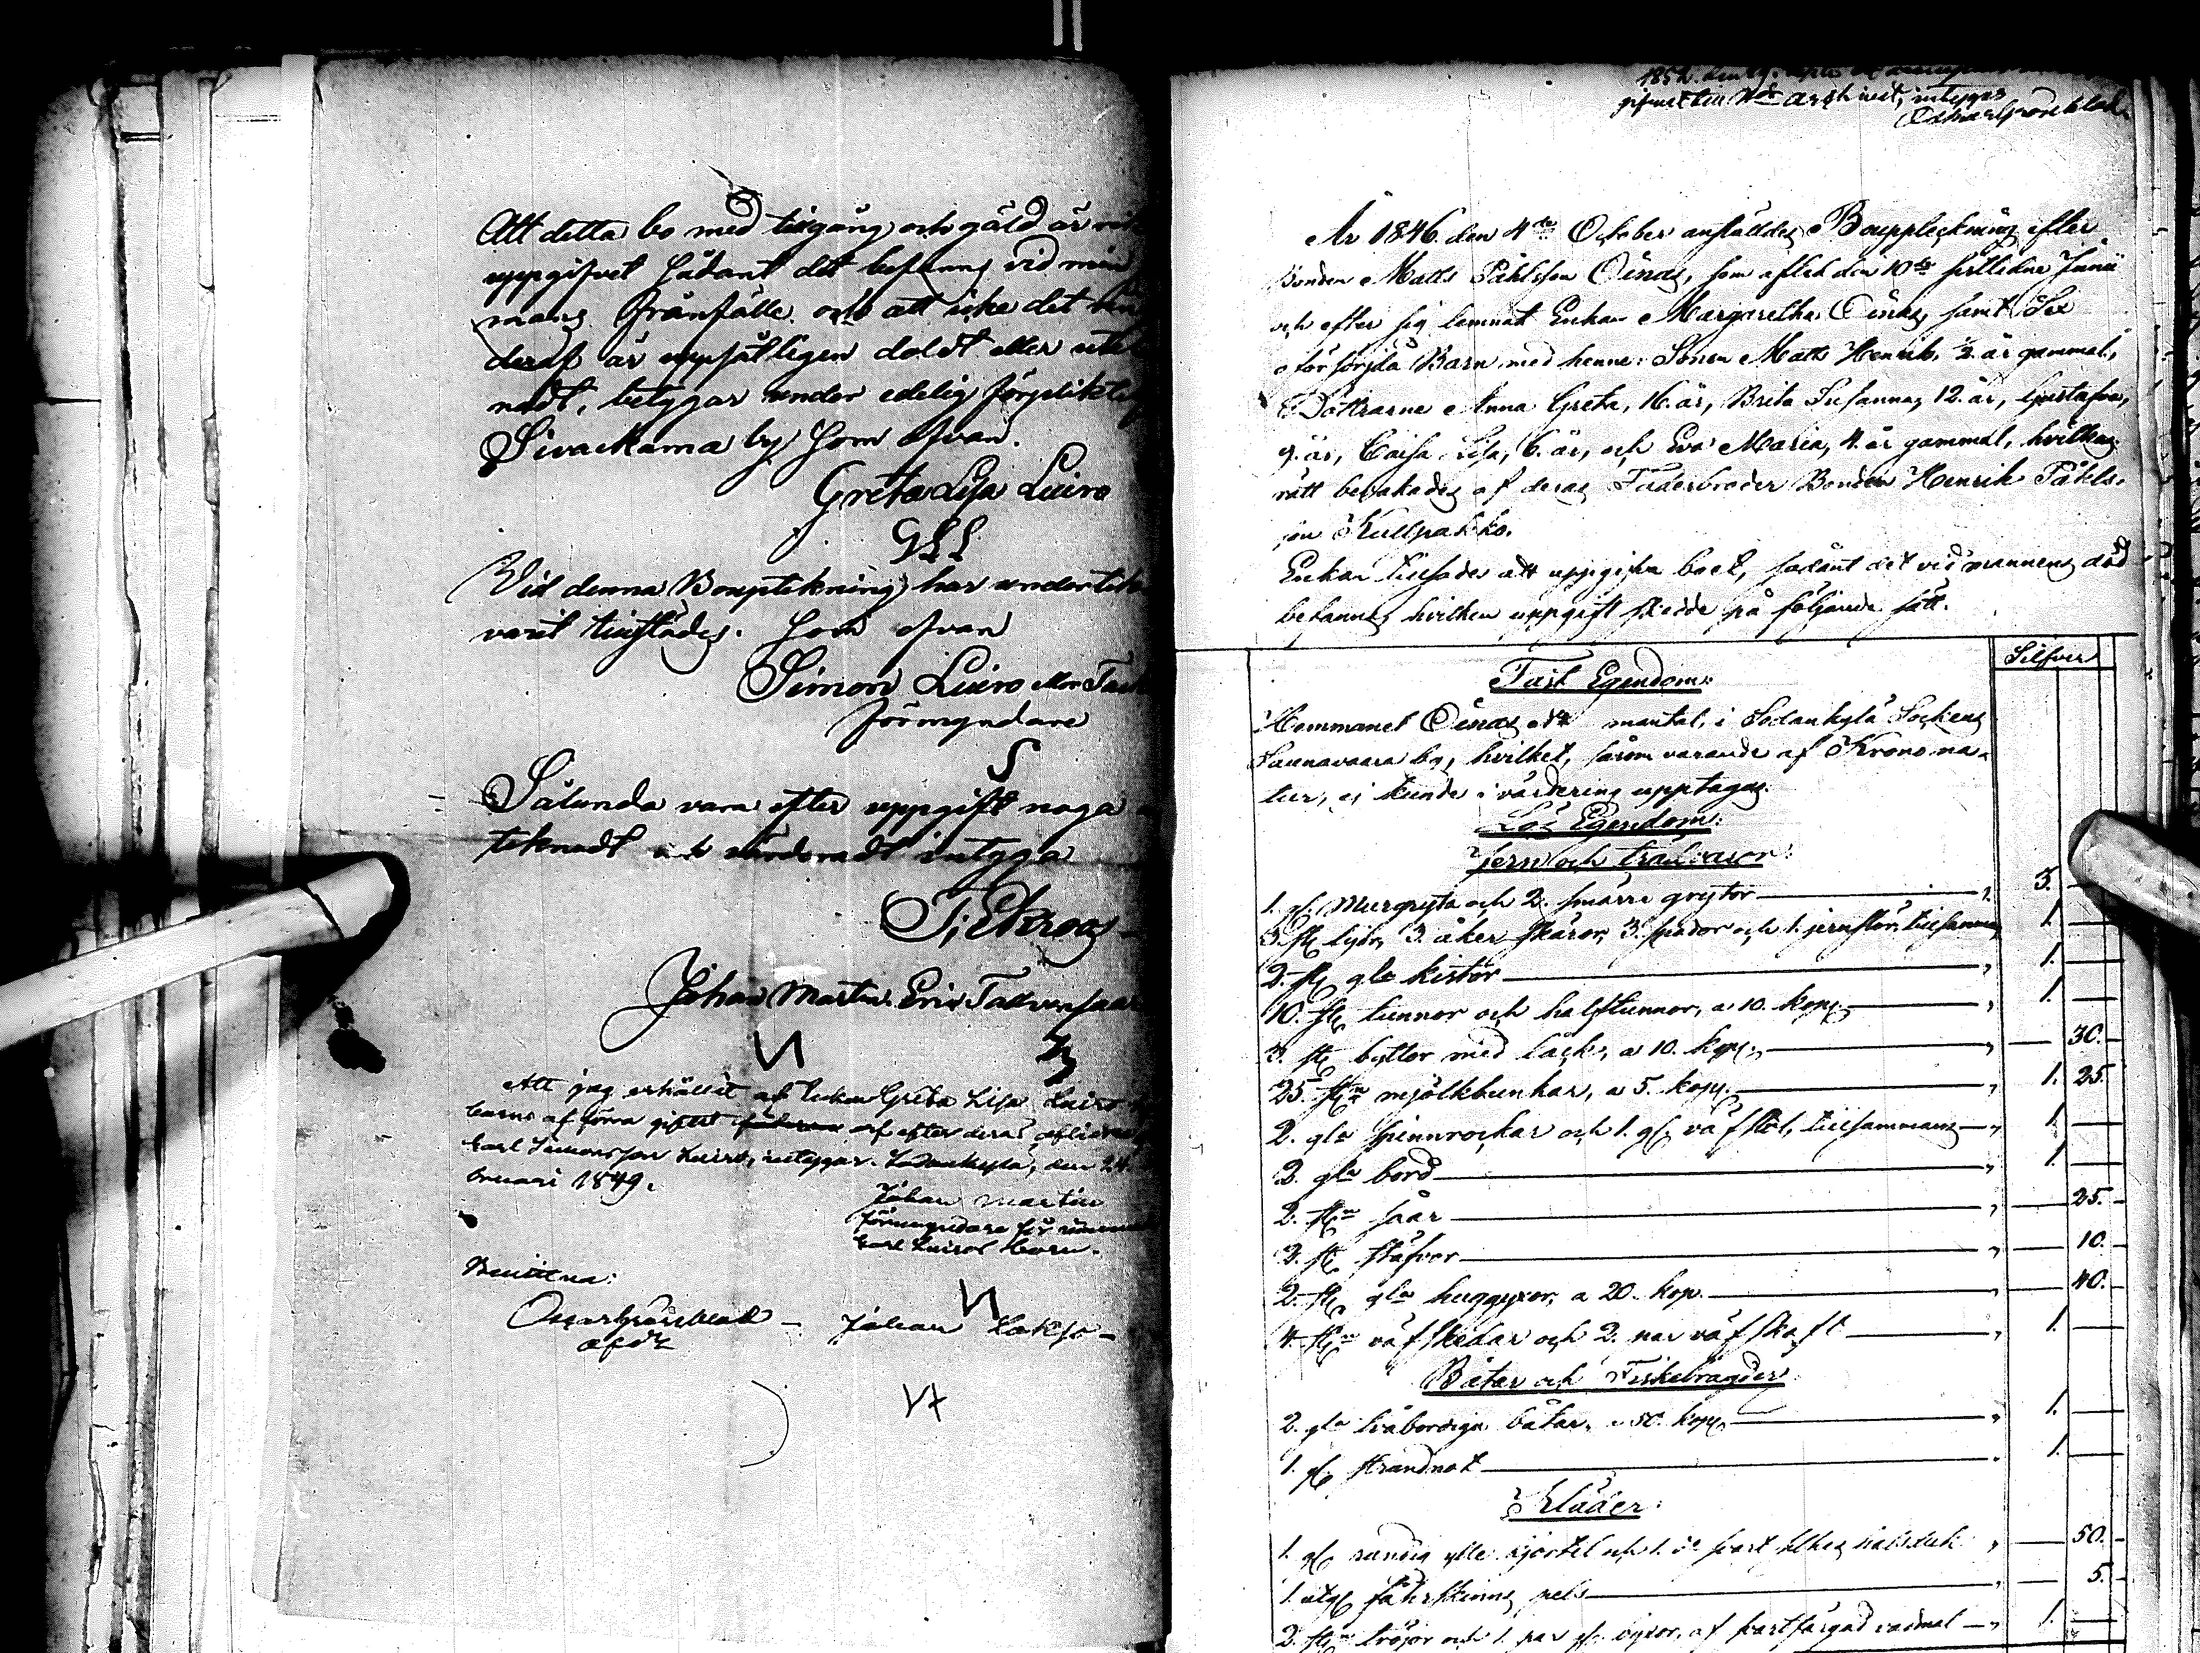 Att detta bo med tillgång och gäld är
uppgifvet sådant det befanns vid min
mans frånfälle och att icke det
deraf är uppsåtligen doldt eller
nadt, betygar under edelig förpliktel
Sivackama by som ofvan.
Greta Lisa Luiro
GLL
Vid denna Bouptekning har underteck
varit tillstädes. som ofvan
Simon Luiro
förmyndare
S
Sålunda vara efter uppgift noga
teknadt och värderadt intyga
Johan Martin. Eric
Att jag erhållit af Enkan Greta Lisa Luiro
barns af förra giftet arf efter deras aflidne
Carl Simonsson Luiro, intygar. Sodankylä, den 24
bruari 1849.
Johan Martin
förmyndare för
Carl Luiros Barn.
Bevittna:
Johan
1852. den
gifvet till arfskiret, intygas
År 1846 den 4de October anställdes Bouppteckning efter
Bonden Matts Påhlsson Oinas, som afled den 10de sistledne Junii
och efter sig lemnat Enkan Margaretha Oinas, samt Sex
oförsörjda Barn med henne: Sonen Matts Henrik, 1/2 år gammal,
Döttrarne Anna Greta, 16 år, Brita Susanna, 12. år, Gustafva,
9. år, Caisa Lisa, 6. år, och Eva Maria, 4. år gammal, hvilkas
rätt bevakades af deras Faderbroder Bonden Henrik Påhls-
son Kullpakko.
Enkan tillsades att uppgifva boet, sådant det vid mannens död
befanns, hvilken uppgift skedde på följande sätt.
Silfver
Fast Egendom:
Hemmanet Oinas mantal, i Sodankylä Sockens
Saunavaara by, hvilket, såsom varande af Krono na-
tur, ej kunde i värdering upptagas.
Lös Egendom:
Jern och trädvaror:
1. gl. Murgryta och 2. smärre grytor — 3. —
3. st. liar, 3. åker skäror, 3. spador och 1. jernstör, tillsammans 1. —
2. st. gla kistor — 1. —
10. st. tunnor och halftunnor, a 10. kop. — 1. —
3. st. byttor med lock, a 10. kop., — 30. —
25. st. mjölkbunkar, a 5. kop. — 1. 25.
2. gla spinnrockar och 1. gl. väfstol, tillsammans — 1. —
2. gla bord — 1. —
2. st. såar — 25. —
2. st. stäfvor — 10. —
2. st. gla huggyxor, a 20. kop. — 40. —
4. st. väfskedar och 2. par väfskaft — 1. —
Båtar och Fiskebragder:
2. gla tvåbordiga båtar, a 50. kop. — 1. —
1. gl. strandnot — 1. —
Kläder:
1. gl. randig ylle kjortel och 1. do svart silkes halsduk — 50. —
1. utgl. fårskinns pels — 5. —
2. st. tröjor och 1. par gl. byxor, af svartfärgad vadmal — 1. —